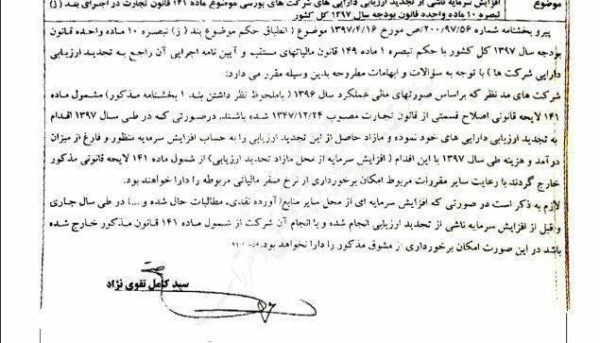 موضوع
افزایش سرمایه ناشی از تجدید ارزیابی دارایی های شرکت های بورسی موضوع ماده ۱۴۱ قانون تجارت در اجرای بند ( ز )
تبصره ۱۰ ماده واحده قانون بودجه سال ۱۳۹۷ کل کشور
پیرو بخشنامه شماره ۲۰۰/۹۷/۵۶/ص مورخ ۱۳۹۷/۴/۱۶ موضوع ( انطباق حکم موضوع بند ( ز) تبصره ۱۰ ماده واحده قانون
بودجه سال ۱۳۹۷ کل کشور با حکم تبصره ۱ ماده ۱۴۹ قانون مالیاتهای مستقیم و آیین نامه اجرایی آن راجع به تجدید ارزیابی
دارایی شرکت ها ) با توجه به سؤالات و ابهامات مطروحه بدین وسیله مقرر می دارد:
شرکت های مد نظر که براساس صورتهای مالی عملکرد سال ۱۳۹۶ ( باملحوظ نظر داشتن بند ۱ بخشنامه مذکور) مشمول ماده
۱۴۱ لایحه قانونی اصلاح قسمتی از قانون تجارت مصوب ۱۳۴۷/۱۲/۲۴ شده باشند. درصورتی که در طی سال ۱۳۹۷ اقدام
به تجدید ارزیابی دارایی های خود نموده و مازاد حاصل از این تجدید ارزیابی را به حساب افزایش سرمایه منظور و فارغ از میزان
درآمد و هزینه طی سال ۱۳۹۷ با این اقدام ( افزایش سرمایه از محل مازاد تجدید ارزیابی) از شمول ماده ۱۴۱ لایحه قانونی مذکور
خارج گردند با رعایت سایر مقررات مربوط امکان برخورداری از نرخ صفر مالیاتی مربوطه را دارا خواهند بود.
لازم به ذکر است در صورتی که افزایش سرمایه ای از محل سایر منابع( آورده نقدی، مطالبات حال شده و ...) در طی سال جاری
وقبل از افزایش سرمایه ناشی از تجدید ارزیابی انجام شده و با انجام آن شرکت از شمول ماده ۱۴۱ قانون مذکور خارج شده
باشد در این صورت امکان برخورداری از مشوق مذکور را دارا نخواهد بود.
سید کامل تقوی نژاد